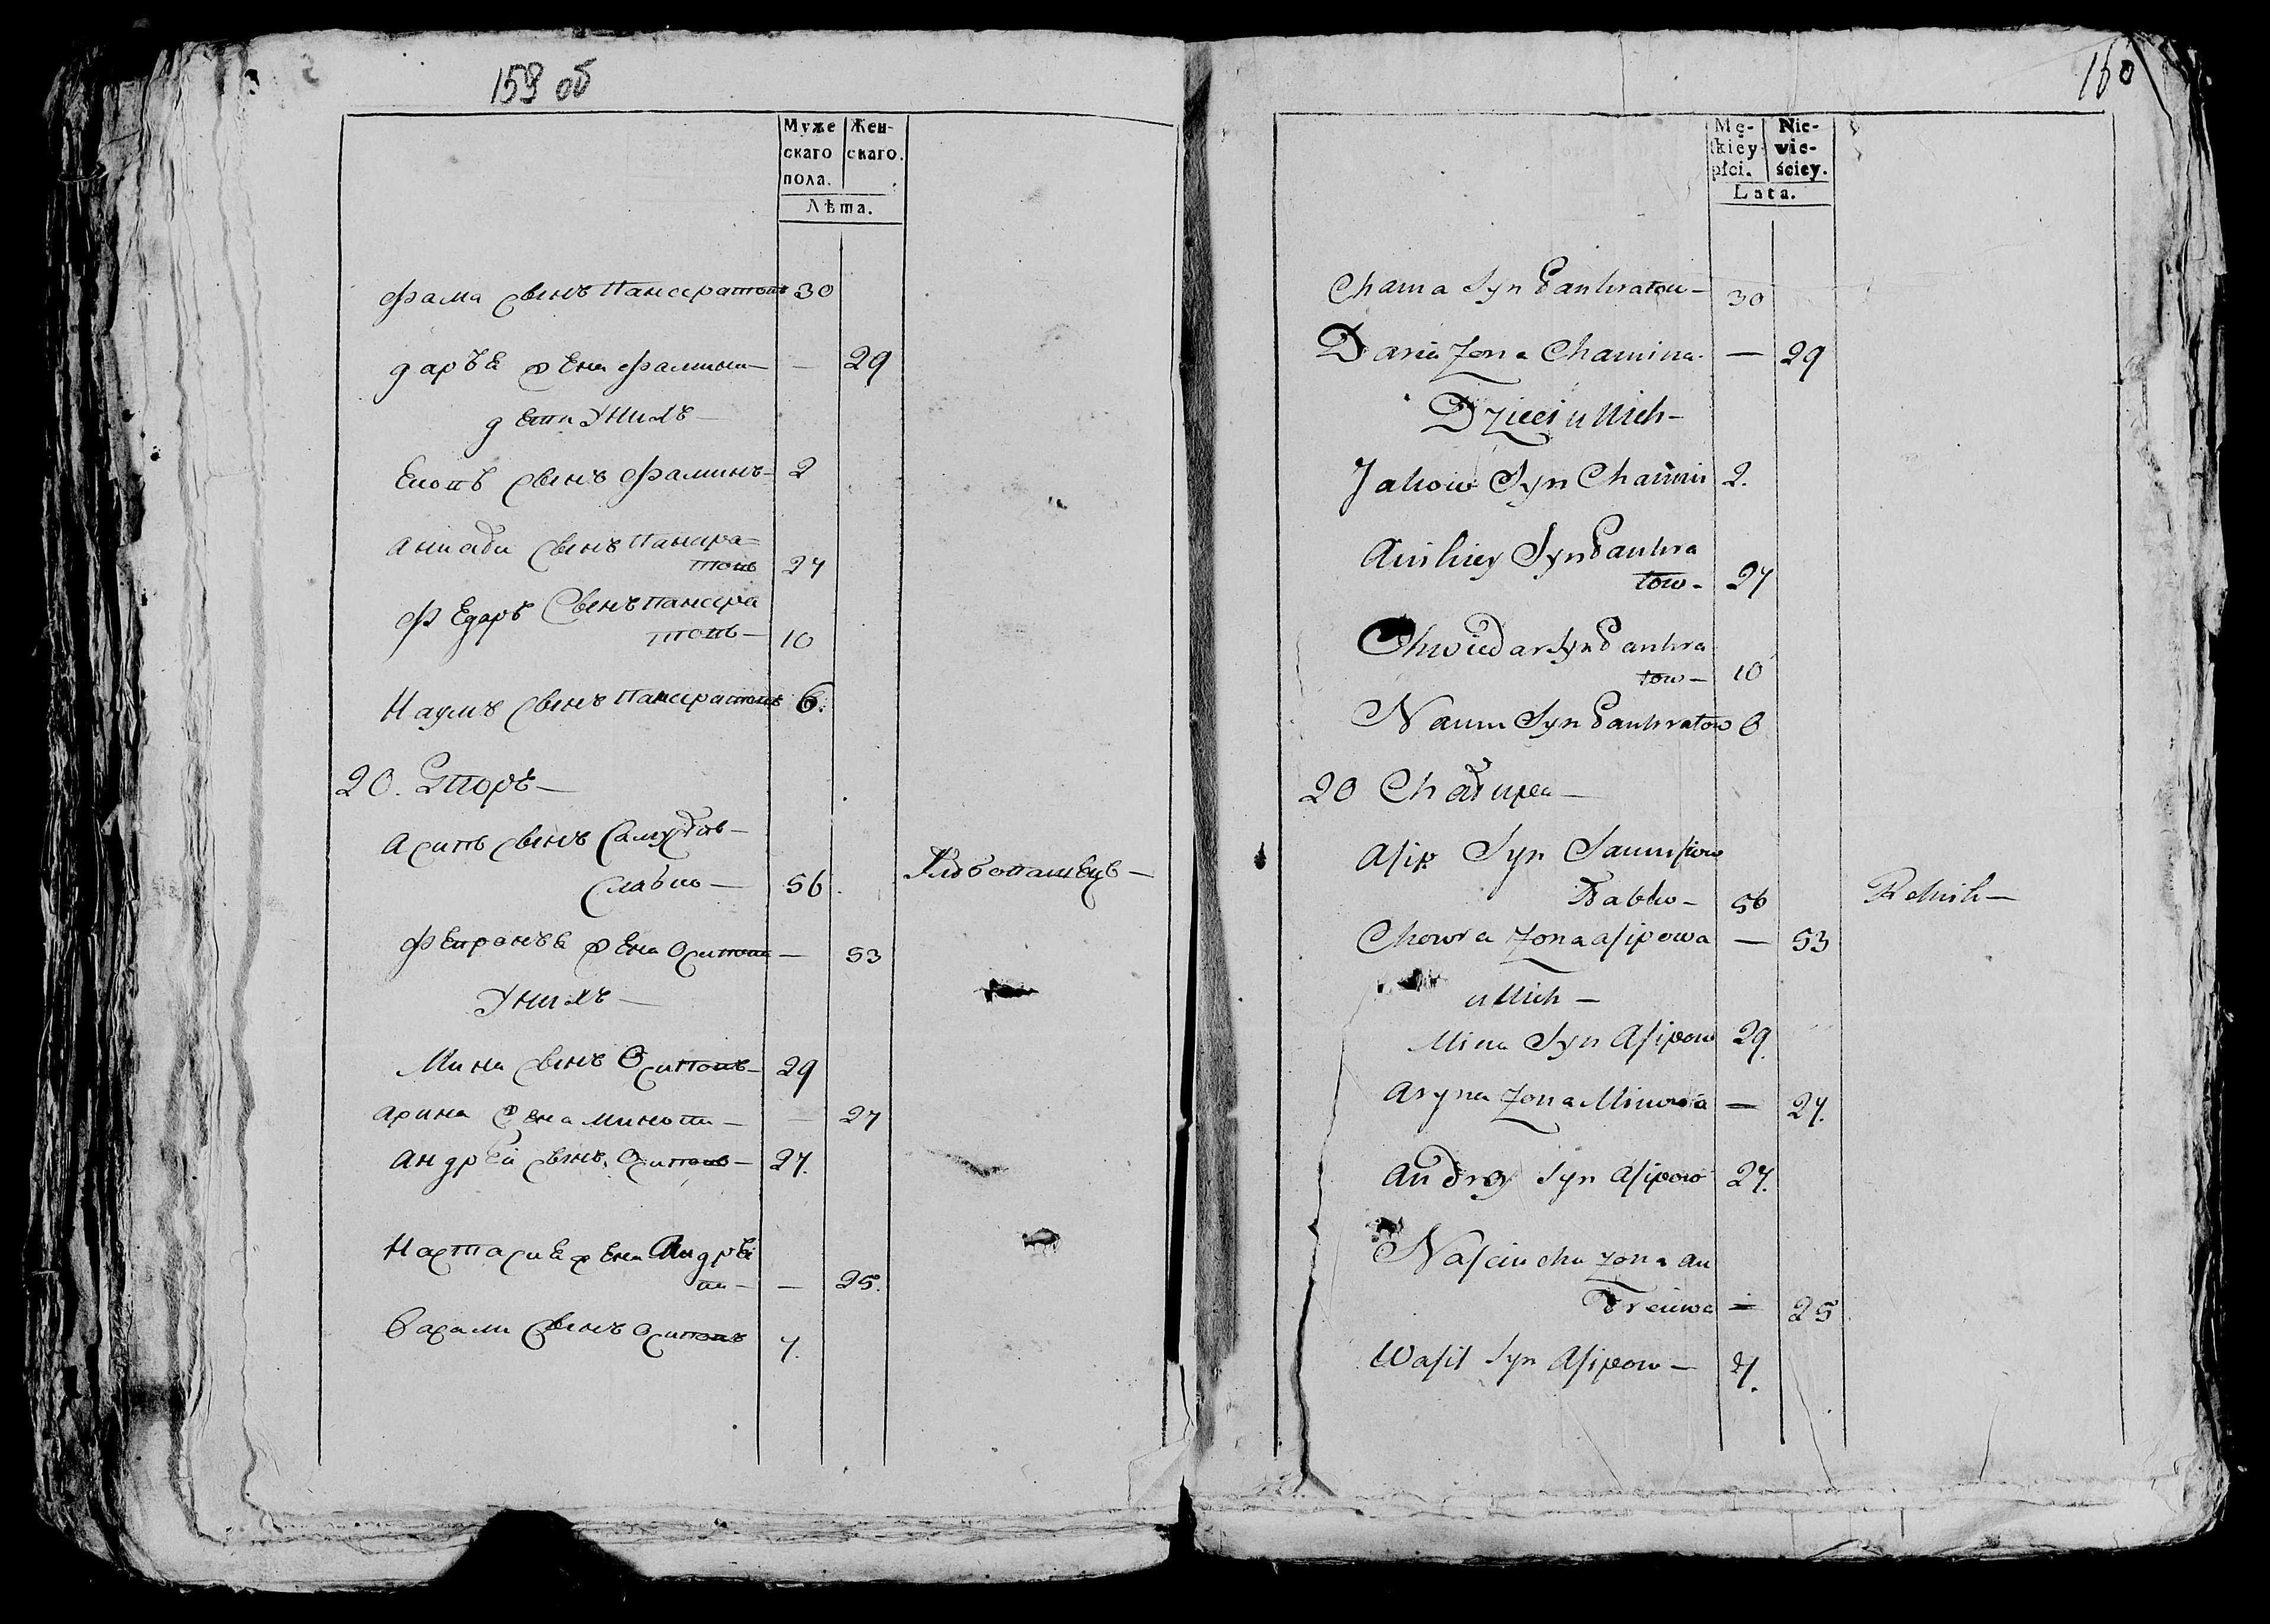 159 об
Муже
скаго
пола.
Жен-
скаго.
Лѣта.
Фама сынъ Панкратовъ 30
Даръя жена Фамина — 29
дети У нихъ —
сынъ Фаминъ — 2
сынъ Панкра=
товъ 27
Федаръ Сынъ Панкра
товъ — 10
Наумъ сынъ Панкратовъ 6.
20. Двторъ —
Асипъ сынъ
56.
жена Осипова — 53
У нихъ —
Мина сынъ Осиповъ — 29
Арина жена Минова — — 27
Андрѣй сынъ Осиповъ — 27.
Настасия жена Андрѣе
ва — — 25.
сынъ Осиповъ 7.
160
Mę-
skiey
płci.
Nie-
wie-
ściey.
Lata.
Chama Syn Pankratow — 30
Daria Żona Chamina — 29
Dzieci u Nich —
Jakow Syn Chamin 2.
Anikiey Syn Pankra
tow — 27
Chwiedar Syn Pankra
tow — 10
Naum Syn Pankratow 6
20 Chałupa —
Asip Syn
Babko — 56 Rolnik —
Chowra Żona Asipowa — 53
u Nich —
Mina Syn Asipow 29
Aryna Żona Minowa — 27.
Andrey Syn Asipow 27.
Nasciucha Żona An
dreiowa — 25
Wasil Syn Asipow — 7.